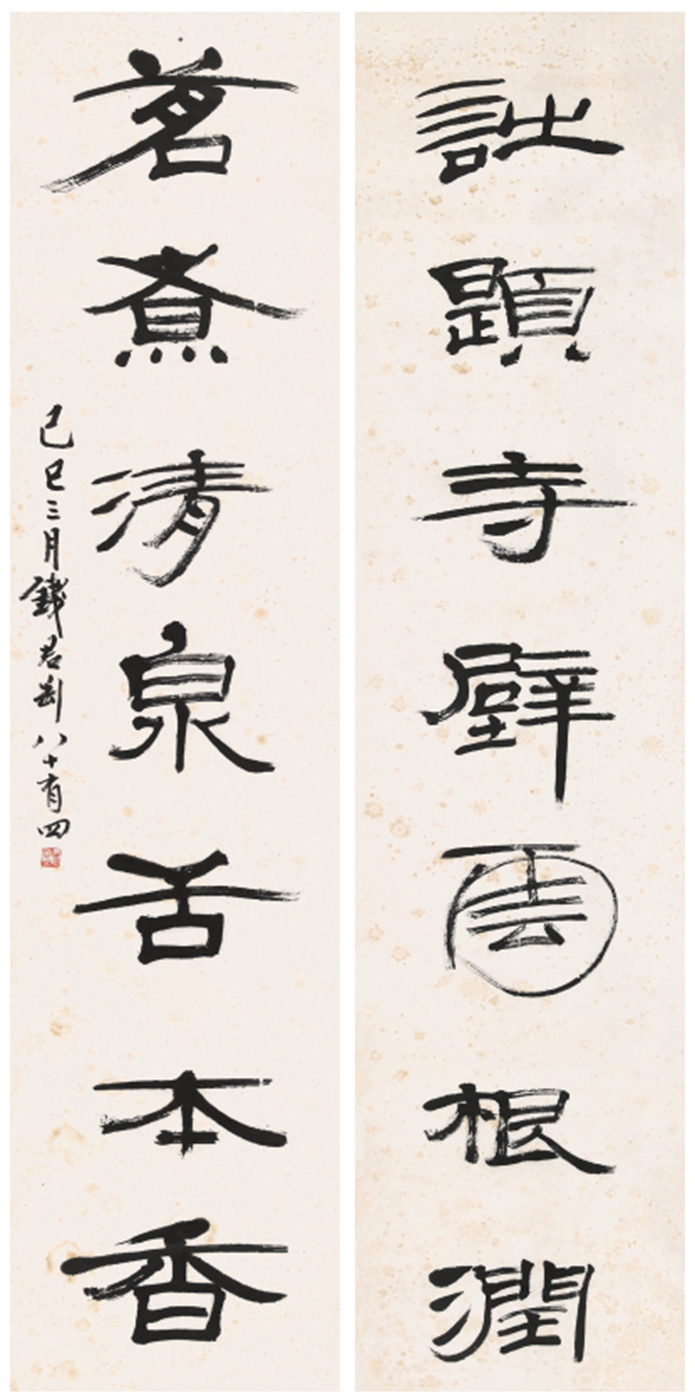 詩題寺壁雲根潤
茗煮清泉舌本香
己巳三月錢君匋八十有四